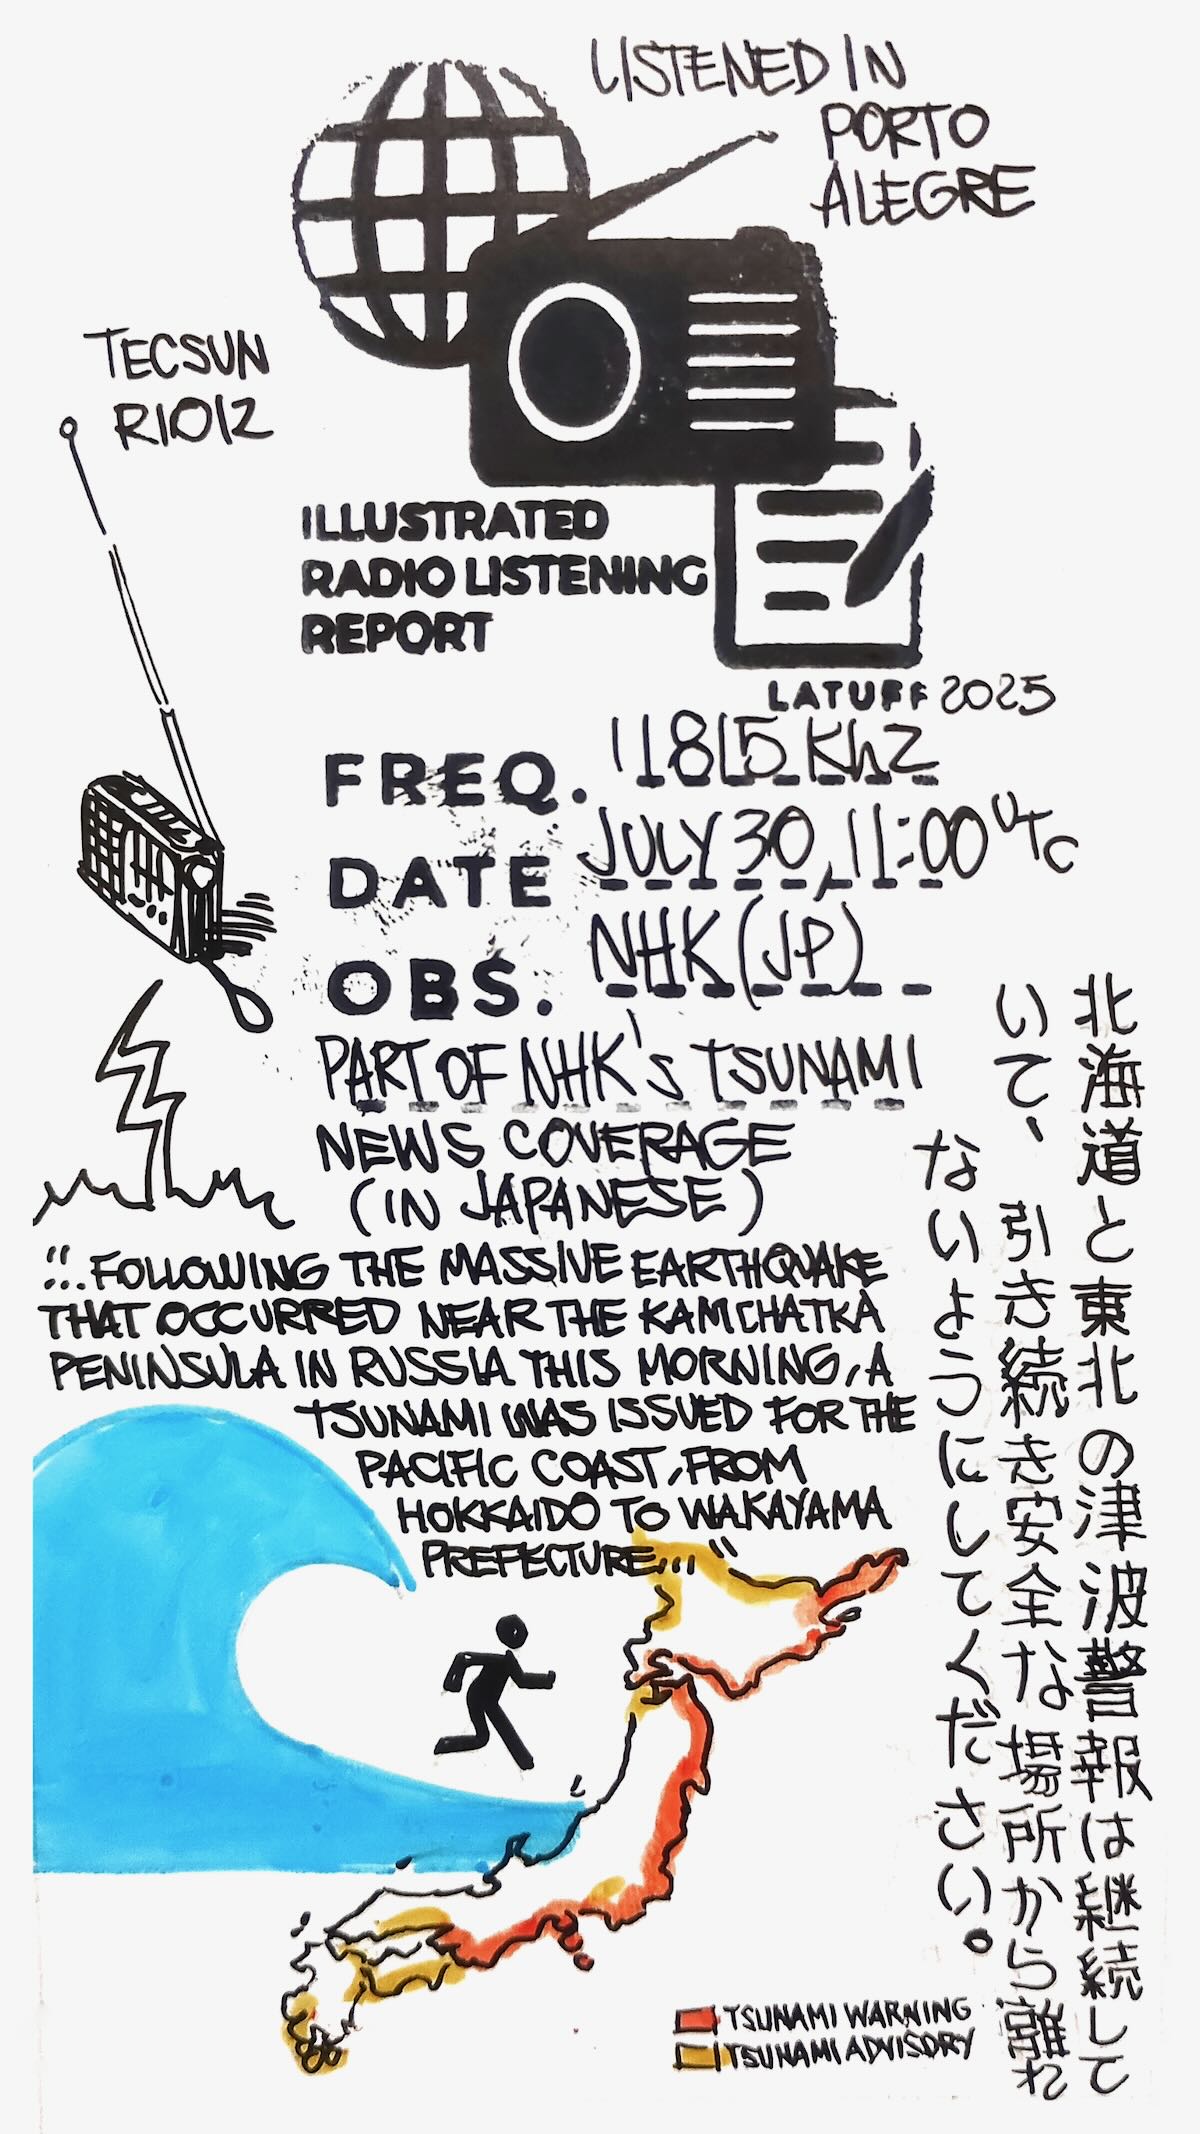 LISTENED IN
PORTO
ALEGRE
TECSUN
R1012
ILLUSTRATED
RADIO LISTENING
REPORT
LATUFF 2025
FREQ. 11815 KHZ
DATE JULY 30, 11:00 UTC
OBS. NHK (JP)
PART OF NHK's TSUNAMI
NEWS COVERAGE
(IN JAPANESE)
"...FOLLOWING THE MASSIVE EARTHQUAKE
THAT OCCURRED NEAR THE KAMCHATKA
PENINSULA IN RUSSIA THIS MORNING, A
TSUNAMI WAS ISSUED FOR THE
PACIFIC COAST, FROM
HOKKAIDO TO WAKAYAMA
PREFECTURE..."
北海道と東北の津波警報は継続して
いて、引き続き安全な場所から離れ
ないようにしてください。
TSUNAMI WARNING
TSUNAMI ADVISORY